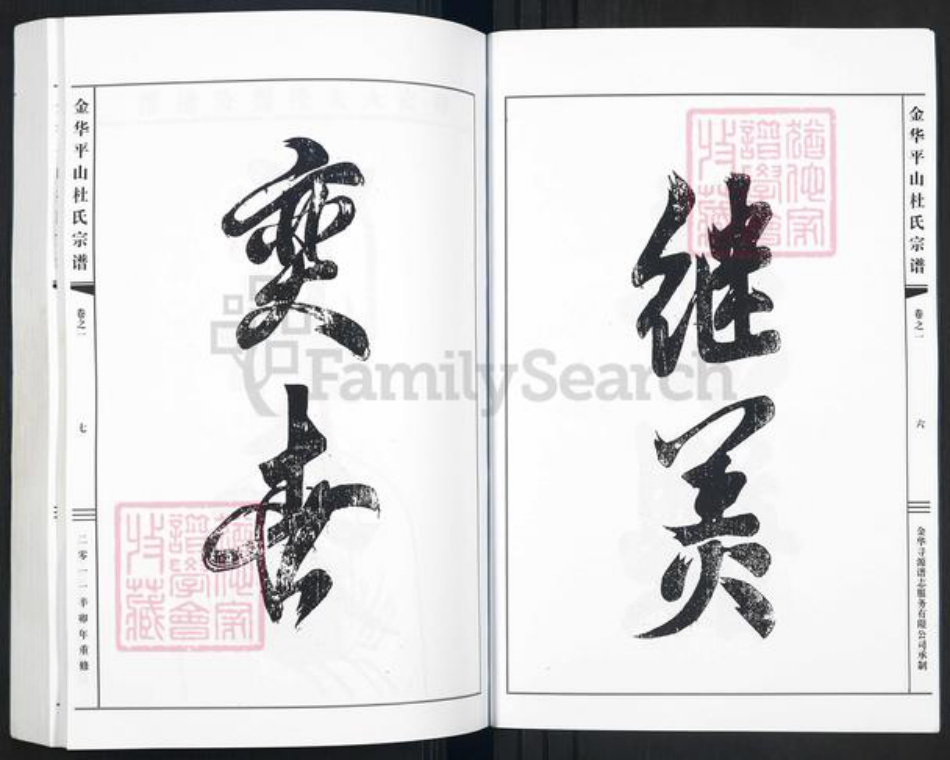 金华平山杜氏宗谱
卷之一
六
金华寻源谱志服务有限公司承制
继美
奕
金华平山杜氏宗谱
卷之一
七
二零一一辛卯年重修
譜學會
收藏
FamilySearch